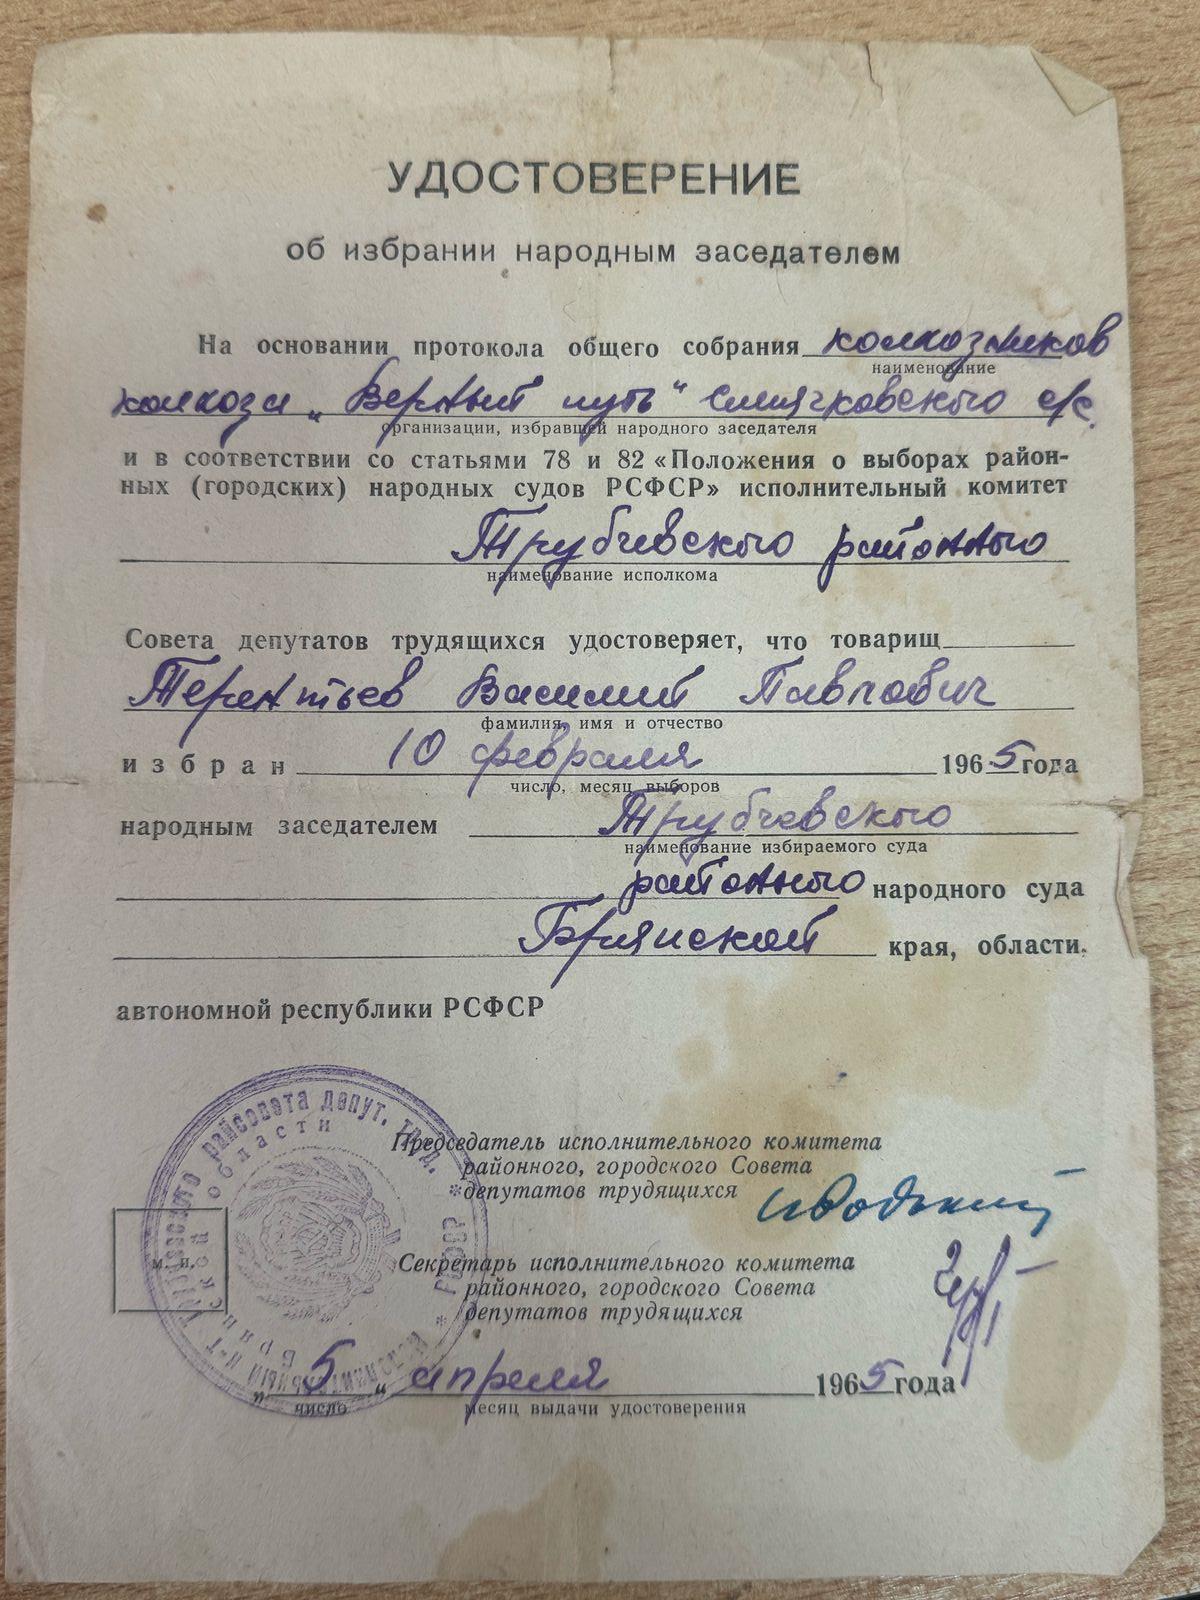 УДОСТОВЕРЕНИЕ
об избрании народным заседателем
На основании протокола общего собрания колхозников
наименование
колхоза „Верный путь“ Смячковского с/с.
организации, избравшей народного заседателя
и в соответствии со статьями 78 и 82 «Положения о выборах район-
ных (городских) народных судов РСФСР» исполнительный комитет
Трубчевского районного
наименование исполкома
Совета депутатов трудящихся удостоверяет, что товарищ
Терентьев Василий Павлович
фамилия, имя и отчество
избран 10 февраля 1965 года
число, месяц выборов
народным заседателем Трубчевского
наименование избираемого суда
районного народного суда
Брянской края, области,
автономной республики РСФСР
Председатель исполнительного комитета
районного, городского Совета
депутатов трудящихся
м. п.
Секретарь исполнительного комитета
районного, городского Совета
депутатов трудящихся
„5“ апреля 1965 года
число месяц выдачи удостоверения
райсовета депут. труд. * РСФСР * Исполнительный к-т
Брянской области